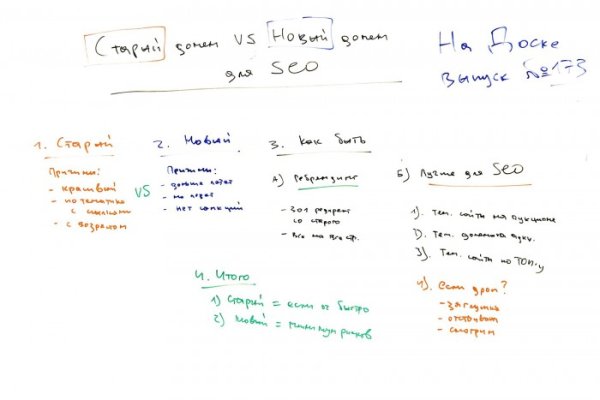 Старый домен VS Новый домен
для SEO
На Доске
Выпуск №173
1. Старый
Причины:
- красивый
- по тематике
с ссылками
- с возрастом
VS
2. Новый
Причины:
- дольше
- не
- нет санкций
3. Как быть
А) Ребрендинг
- 301 редирект
со старого
- все на все стр.
Б) Лучше для SEO
1). Тем. сайты на аукционе
2). Тем. домена аукц.
3). Тем. сайты по ТОП-у
4). Если дроп?
- заглушка
- отстаиваем
- смотрим
4. Итого
1) Старый = если ок быстро
2) Новый = минимум рисков